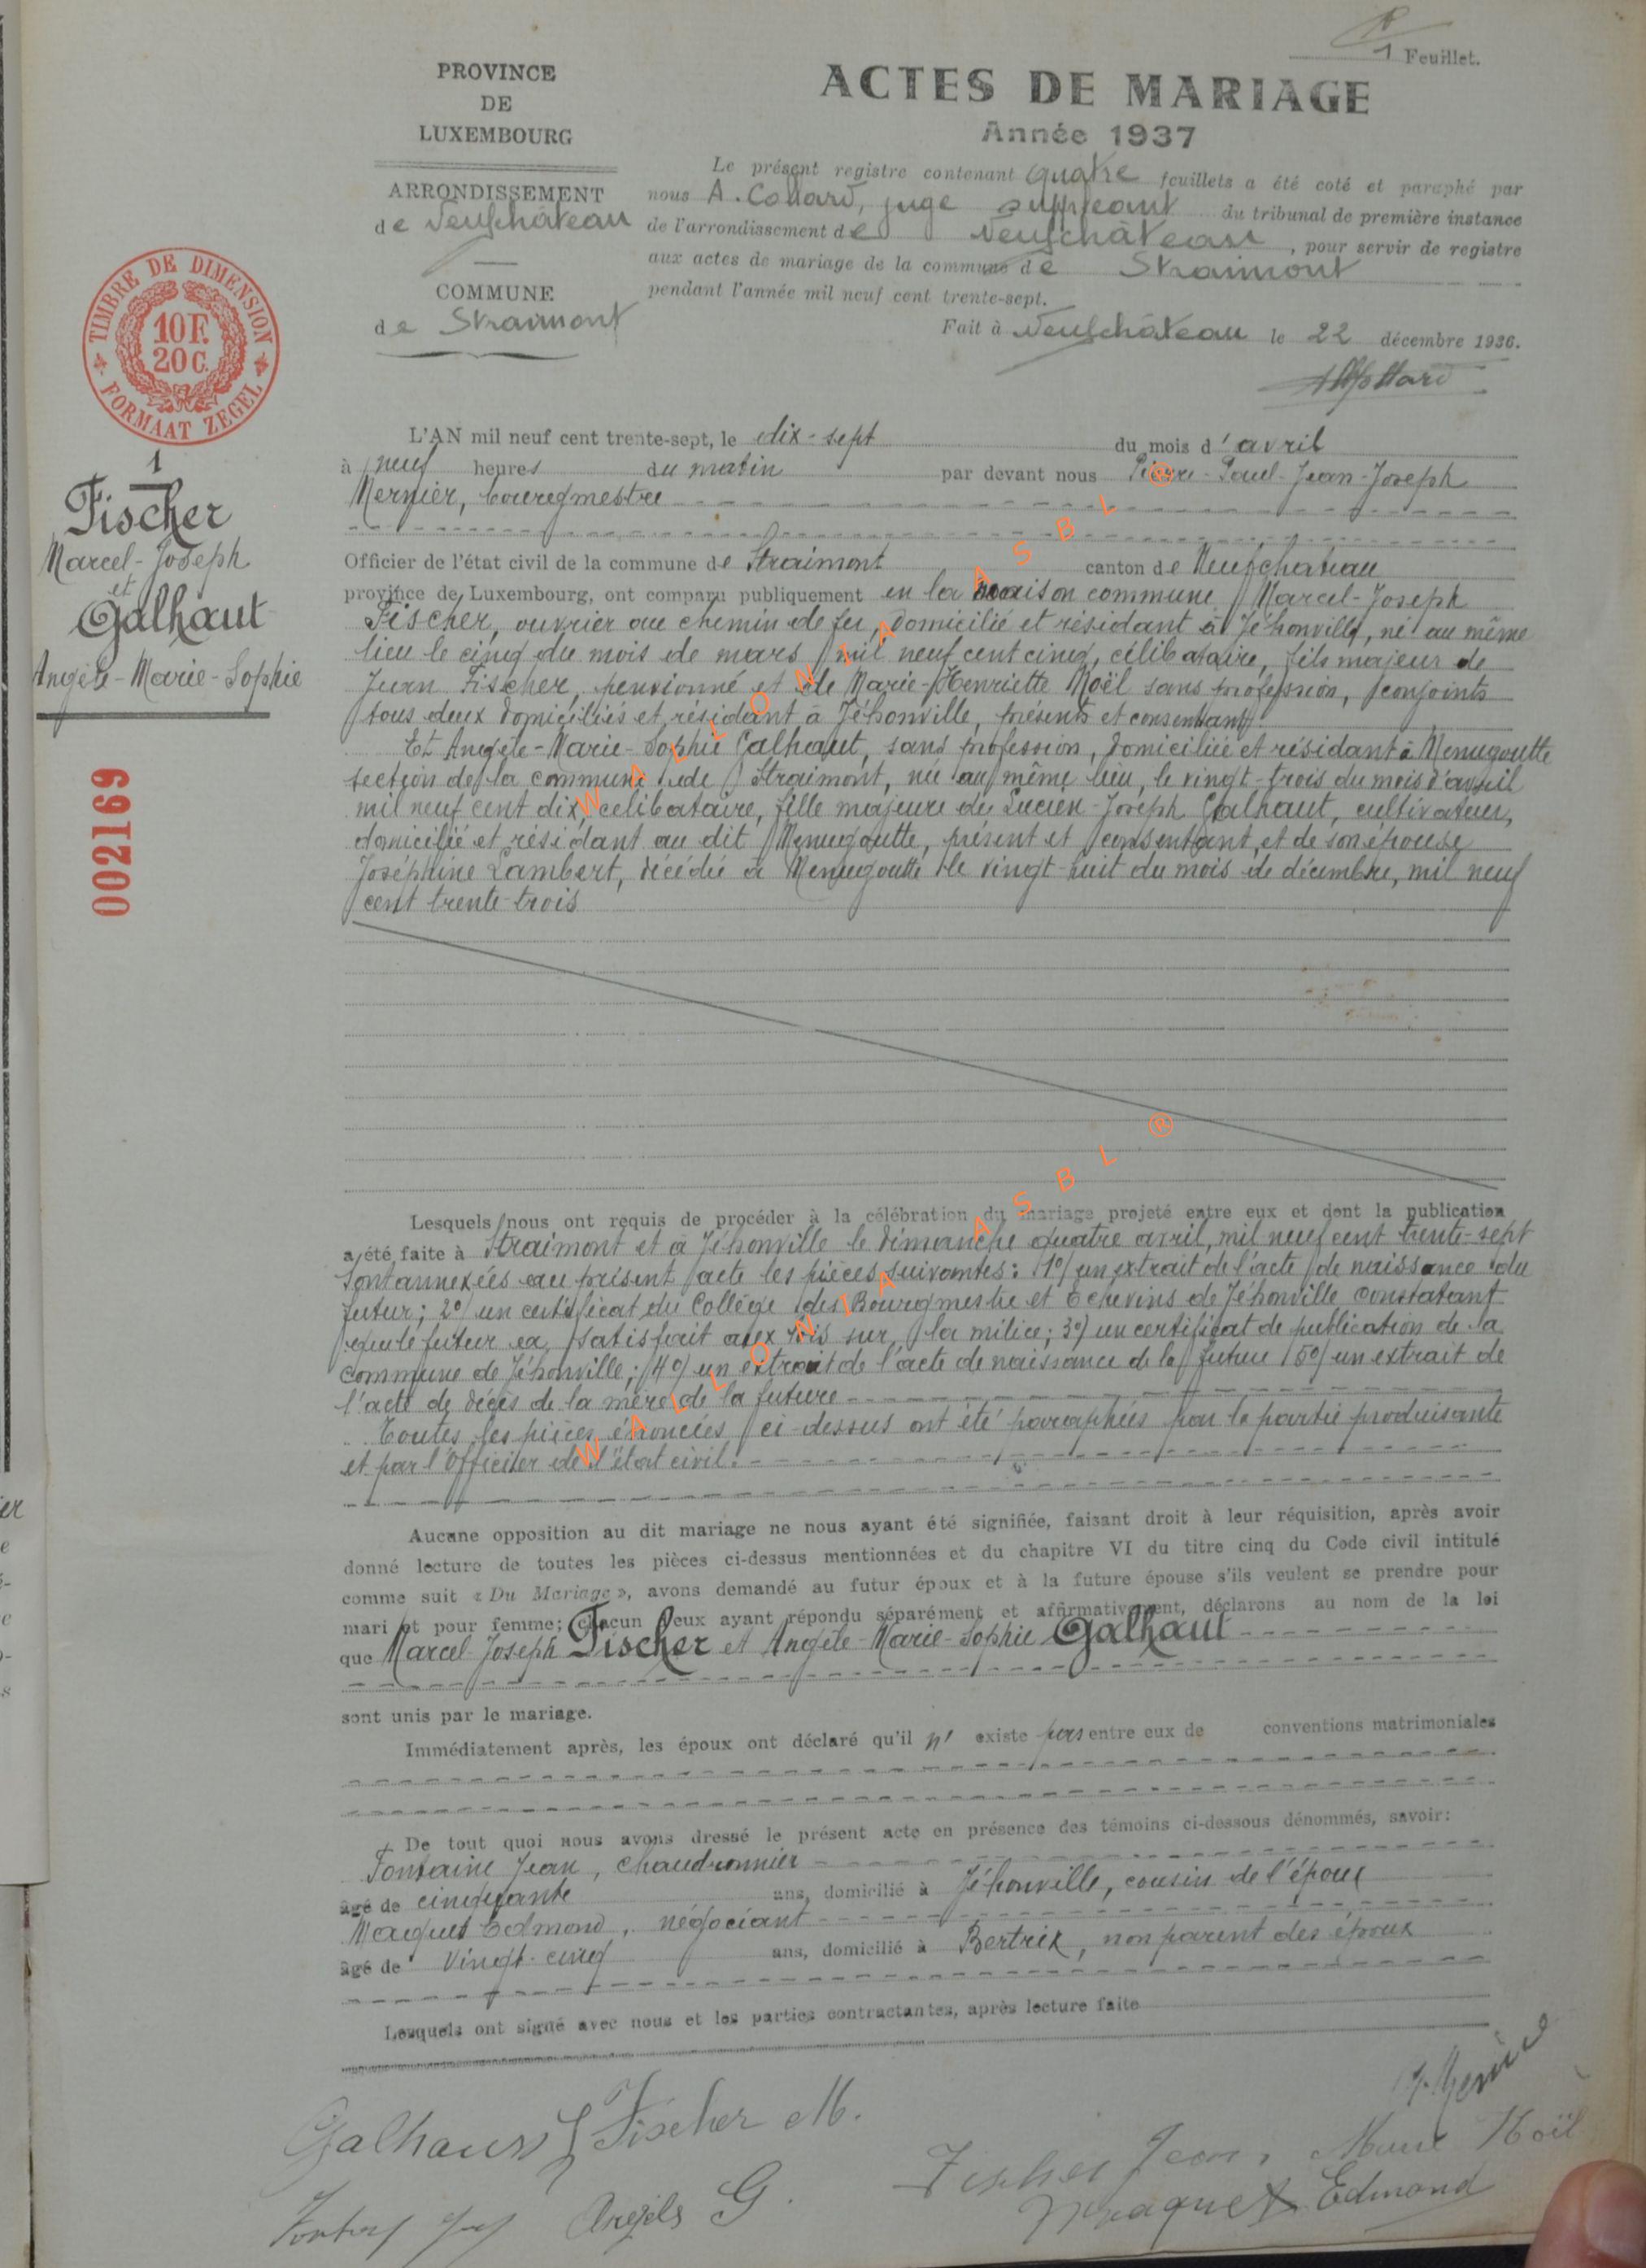 1 Feuillet.
PROVINCE
DE
LUXEMBOURG
ARRONDISSEMENT
de Neufchâteau
COMMUNE
de Straimont
ACTES DE MARIAGE
Année 1937
Le présent registre contenant quatre feuillets a été coté et paraphé par
nous A. Collard, juge suppléant du tribunal de première instance
de l'arrondissement de Neufchâteau, pour servir de registre
aux actes de mariage de la commune de Straimont
pendant l'année mil neuf cent trente-sept.
Fait à Neufchâteau le 22 décembre 1936.
TIMBRE DE DIMENSION
10 F.
20 C.
FORMAAT ZEGEL
1
Fischer
Marcel-Joseph
et
Galhaut
Angèle-Marie-Sophie
002169
L'AN mil neuf cent trente-sept, le dix-sept du mois d'avril
à neuf heures du matin par devant nous Pierre-Paul-Jean-Joseph
Mernier, bourgmestre
Officier de l'état civil de la commune de Straimont canton de Neufchateau
province de Luxembourg, ont comparu publiquement en la maison commune Marcel-Joseph
Fischer, ouvrier au chemin de fer, domicilié et résidant à Jéhonville, né au même
lieu le cinq du mois de mars mil neuf cent cinq, célibataire, fils majeur de
Jean Fischer, pensionné et de Marie-Henriette Noël sans profession, conjoints
tous deux domiciliés et résidant à Jéhonville, présents et consentant.
Et Angèle-Marie-Sophie Galhaut, sans profession, domiciliée et résidant à Menugoutte
section de la commune de Straimont, née au même lieu, le vingt-trois du mois d'avril
mil neuf cent dix, celibataire, fille majeure de Lucien-Joseph Galhaut, cultivateur,
domicilié et résidant au dit Menugoutte, présent et consentant, et de son épouse
Joséphine Lambert, décédée à Menugoutte le vingt-huit du mois de décembre, mil neuf
cent trente-trois
Lesquels nous ont requis de procéder à la célébration du mariage projeté entre eux et dont la publication
a été faite à Straimont et à Jéhonville le dimanche quatre avril, mil neuf cent trente-sept
Sont annexées au présent acte les pièces suivantes: 1º/ un extrait de l'acte de naissance du
futur; 2º/ un certificat du Collège des Bourgmestre et Echevins de Jéhonville constatant
que le futur a satisfait aux lois sur la milice; 3º/ un certificat de publication de la
commune de Jéhonville; 4º/ un extrait de l'acte de naissance de la future 5º/ un extrait de
l'acte de décès de la mère de la future
Toutes les pièces énoncées ci-dessus ont été paraphées par la partie produisante
et par l'Officier de l'état civil.
Aucune opposition au dit mariage ne nous ayant été signifiée, faisant droit à leur réquisition, après avoir
donné lecture de toutes les pièces ci-dessus mentionnées et du chapitre VI du titre cinq du Code civil intitulé
comme suit « Du Mariage », avons demandé au futur époux et à la future épouse s'ils veulent se prendre pour
mari et pour femme; chacun d'eux ayant répondu séparément et affirmativement, déclarons au nom de la loi
que Marcel-Joseph Fischer et Angèle-Marie-Sophie Galhaut
sont unis par le mariage.
Immédiatement après, les époux ont déclaré qu'il n' existe pas entre eux de conventions matrimoniales
De tout quoi nous avons dressé le présent acte en présence des témoins ci-dessous dénommés, savoir:
Fontaine Jean, chaudronnier
âgé de cinquante ans, domicilié à Jéhonville, cousin de l'époux
Maquet Edmond, négociant
âgé de vingt-cinq ans, domicilié à Bertrix, non parent des époux
Lesquels ont signé avec nous et les parties contractantes, après lecture faite
Fischer M.
Fischer Jean, Marie Noël
Angèle G.
Maquet Edmond
WALLONIA ASBL ®
WALLONIA ASBL ®